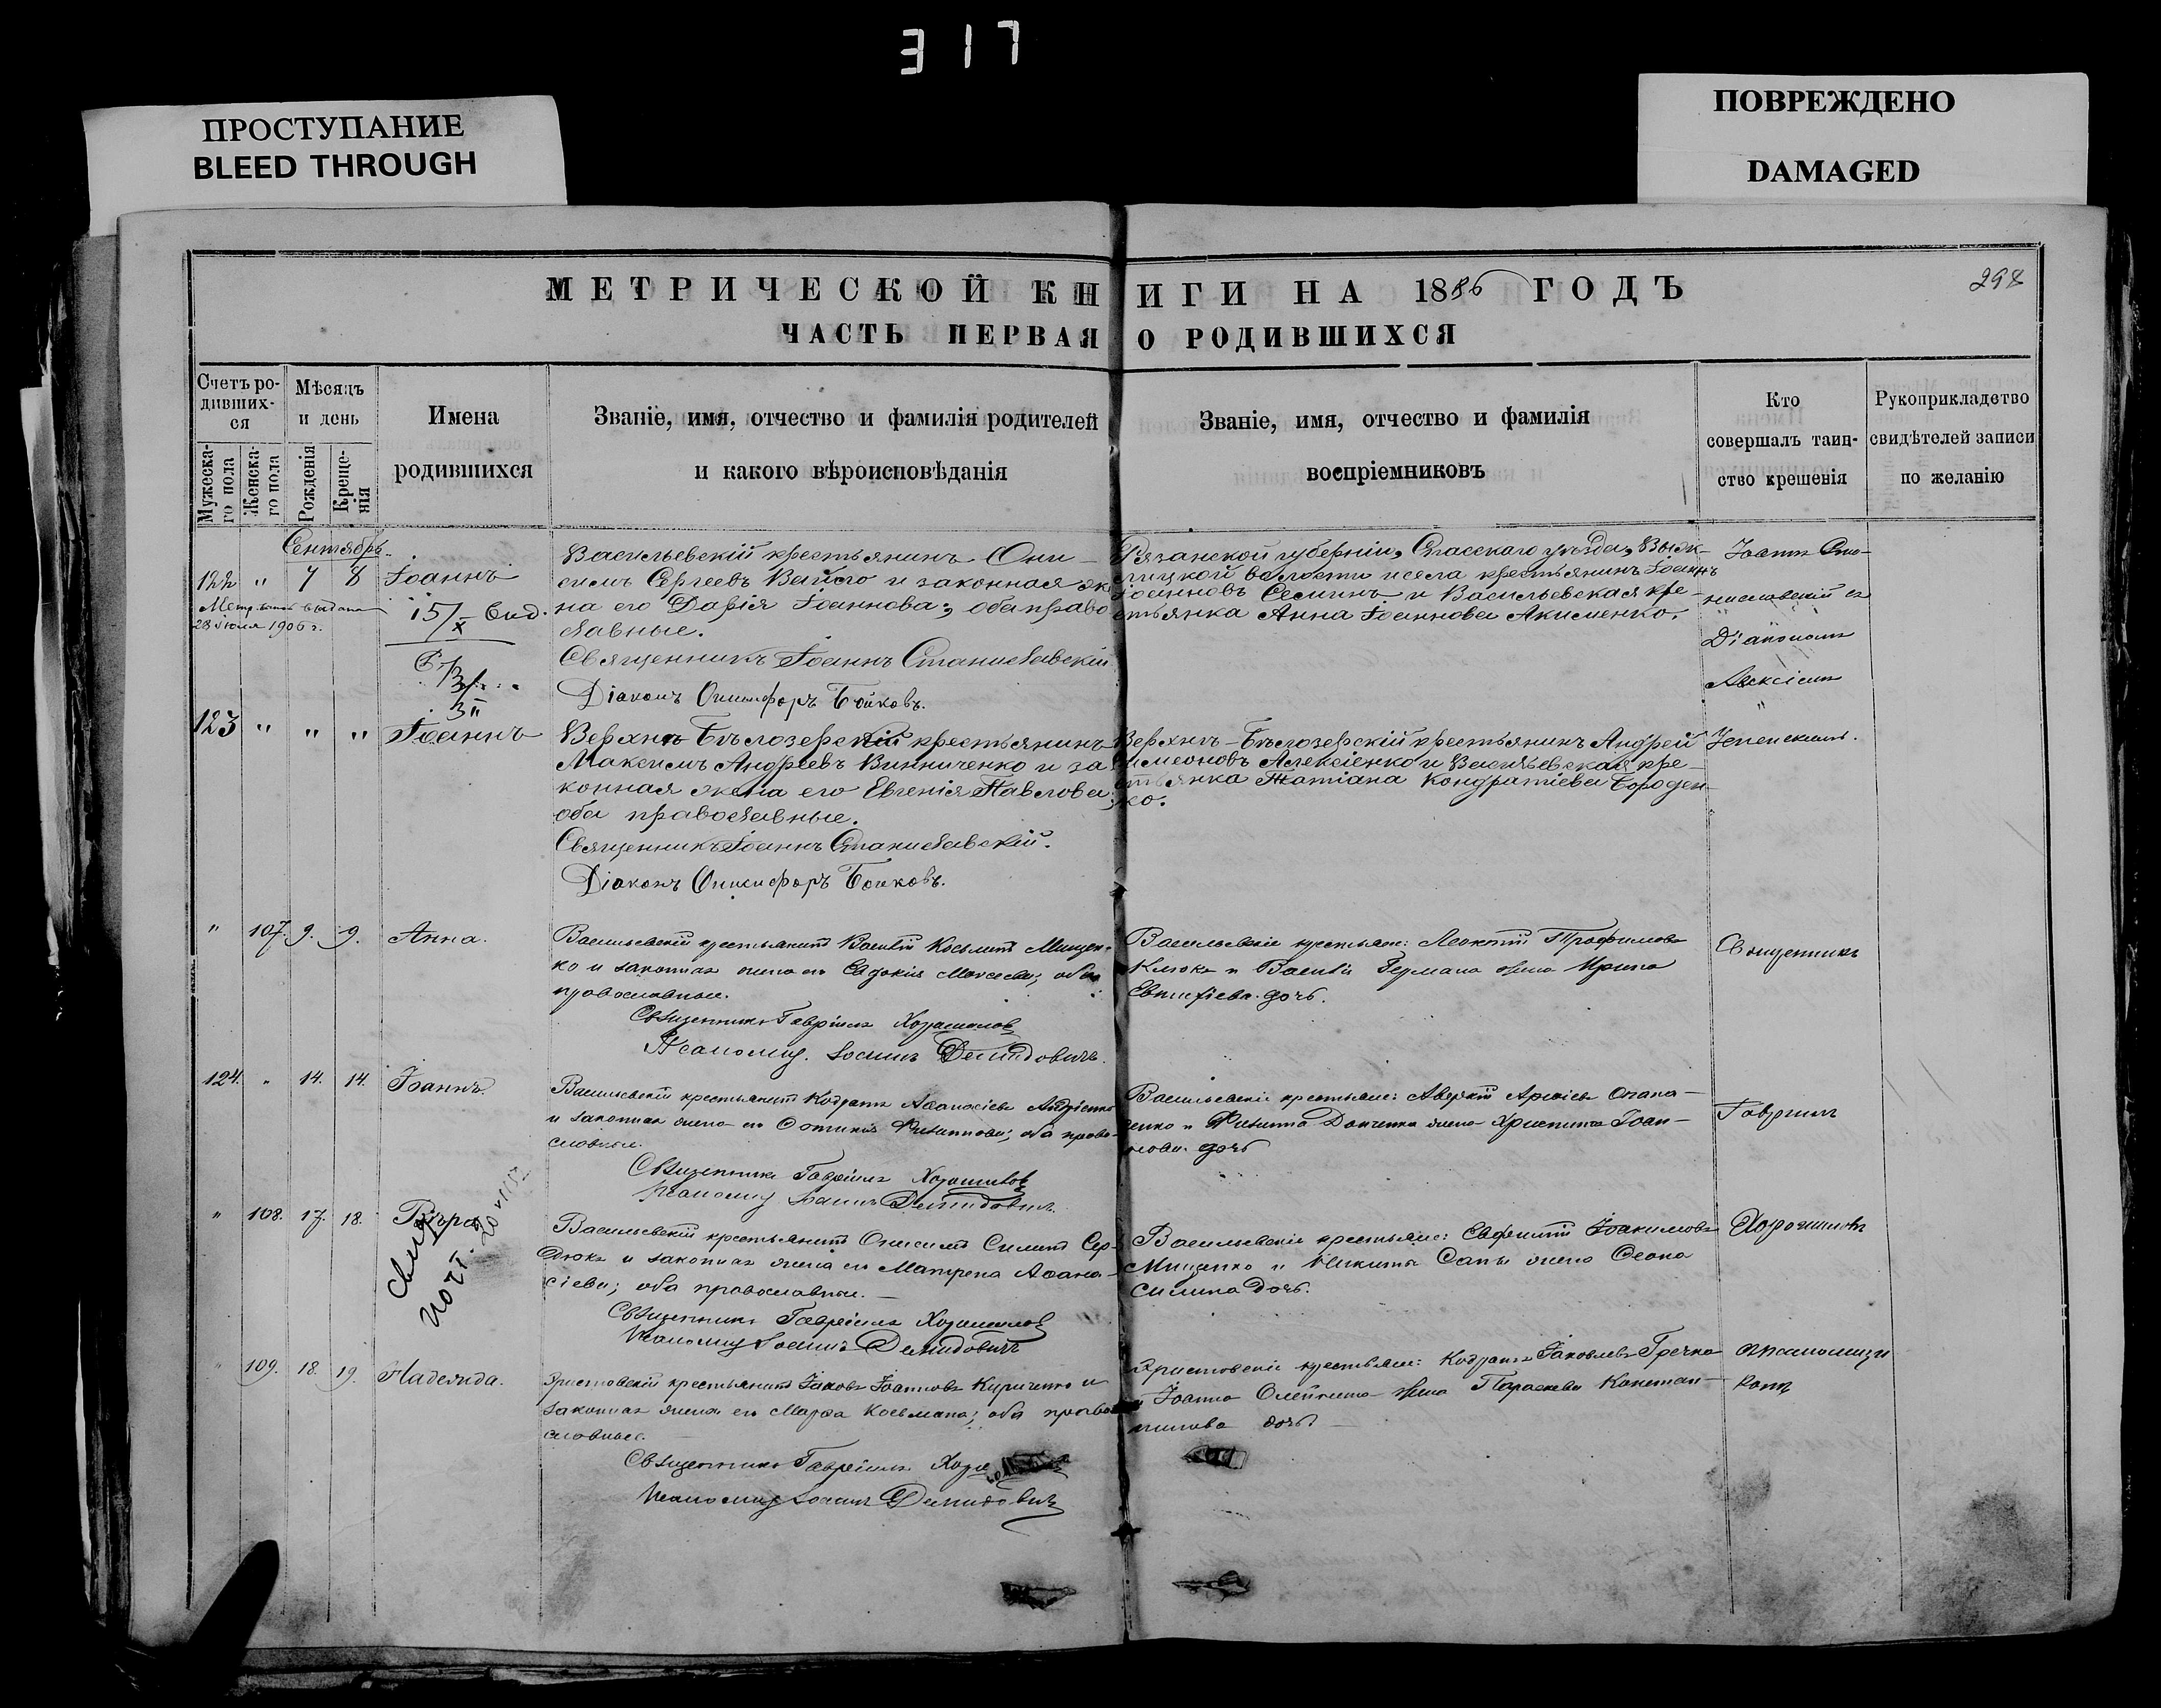 317
ПРОСТУПАНИЕ
BLEED THROUGH
ПОВРЕЖДЕНО
DAMAGED
МЕТРИЧЕСКОЙ КНИГИ НА 1886 ГОДЪ
298
ЧАСТЬ ПЕРВАЯ О РОДИВШИХСЯ
Счетъ ро-
дивших-
ся
Мужеска-
го пола
Женска-
го пола
Мѣсяцъ
и день
Рожденія
Креще-
нія
Имена
родившихся
Званіе, имя, отчество и фамилія родителей
и какого вѣроисповѣданія
Званіе, имя, отчество и фамилія
воспріемниковъ
Кто
совершалъ таин-
ство крещенія
Рукоприкладство
свидѣтелей записи
по желанію
Сентябрь
122 " 7 8 Іоаннъ
28 Іюля 1906 г.
15/X
Васильевскій крестьянинъ Они-
симъ Сергеевъ и законная же
на его Дарія Іоаннова; оба право
славные.
Священникъ Іоаннъ Станиславскій
Діаконъ Онисифоръ Бойковъ.
Рязанской губерніи, Спасскаго уѣзда,
волости и села крестьянинъ Іоаннъ
Іоанновъ Селинъ и Васильевская кре-
стьянка Анна Іоаннова Акименко.
Іоаннъ Ста-
ниславскій съ
Діакономъ
Алексіемъ
123 " " " Іоаннъ
Верхнѣ Бѣлозерскій крестьянинъ
Максимъ Андреевъ Винниченко и за
конная жена его Евгенія Павлова;
оба православные.
Священникъ Іоаннъ Станиславскій.
Діаконъ Онисифоръ Бойковъ.
Верхнѣ-Бѣлозерскій крестьянинъ Андрей
Симеоновъ Алексіенко и Васильевская кре-
стьянка Татіана Кондратіева Бороден-
ко.
" 107. 9. 9. Анна.
Васильевскій крестьянинъ Василій Косьминъ Мищен-
ко и законная жена его Евдокія Моисеева; оба
православные.
Священникъ Гавріилъ
Псаломщ. Іоаннъ Демидовичъ.
Васильевскіе крестьяне: Леонтій Трофимовъ
Клюка и Василія Германа жена Ирина
дочь.
Священникъ
124. " 14. 14. Іоаннъ.
Васильевскій крестьянинъ Кодратъ Аѳанасіевъ Андріенко
и законная жена его Фотинія Филиппова; оба право-
славные.
Священникъ Гавріилъ
Псаломщ Іоаннъ Демидовичъ
Васильевскіе крестьяне: Аверкій
и Филиппа Донченка жена Христина Іоан-
нова дочь
Гавріилъ
" 108. 17. 18. Вѣра
Васильевскій крестьянинъ Онисимъ Силинъ Сер-
дюкъ и законная жена его Матрена Аѳана-
сіева; оба православные.
Священникъ Гавріилъ
Псаломщ Іоаннъ Демидовичъ
Васильевскіе крестьяне: Евфимій Іоакимовъ
Мищенко и Никиты жена Ѳеона
Силина дочь.
" 109. 18. 19. Надежда.
крестьянинъ Іаковъ Іоанновъ Кириченко и
законная жена его Марѳа Косьмина; оба право
славные.
Священникъ Гавріилъ
Псаломщ Іоаннъ Демидовичъ
крестьяне: Кодратъ Іаковлевъ Гречка
и Іоанна Олейника жена Параскева Констан-
тинова дочь
псаломщи
комъ